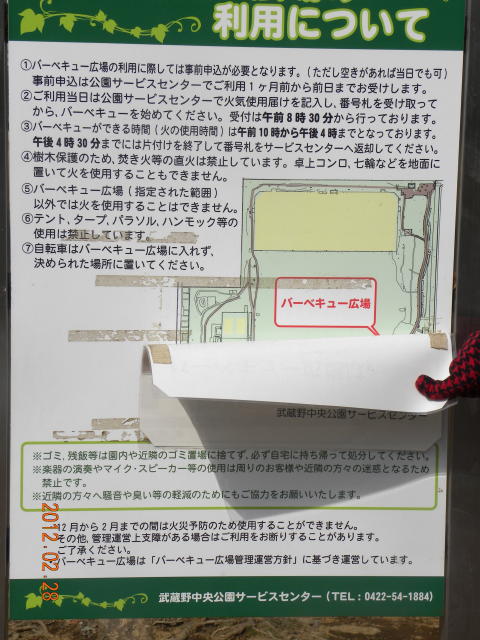 利用について
①バーベキュー広場の利用に際しては事前申込が必要となります。(ただし空きがあれば当日でも可)
事前申込は公園サービスセンターでご利用1ヶ月前から前日までお受けします。
②ご利用当日は公園サービスセンターで火気使用届けを記入し、番号札を受け取って
から、バーベキューを始めてください。受付は午前8時30分から行っております。
③バーベキューができる時間(火の使用時間)は午前10時から午後4時までとなっております。
午後4時30分までには片付けを終了して番号札をサービスセンターへ返却してください。
④樹木保護のため、焚き火等の直火は禁止しています。卓上コンロ、七輪などを地面に
置いて火を使用することもできません。
⑤バーベキュー広場(指定された範囲)
以外では火を使用することはできません。
⑥テント、タープ、パラソル、ハンモック等の
使用は禁止しています。
⑦自転車はバーベキュー広場に入れず、
決められた場所に置いてください。
バーベキュー広場
武蔵野中央公園サービスセンター
※ゴミ、残飯等は園内や近隣のゴミ置場に捨てず、必ず自宅に持ち帰って処分してください。
※楽器の演奏やマイク・スピーカー等の使用は周りのお客様や近隣の方々の迷惑となるため
禁止です。
※近隣の方々へ騒音や臭い等の軽減のためにもご協力をお願いいたします。
12月から2月までの間は火災予防のため使用することができません。
その他、管理運営上支障がある場合はご利用をお断りすることがあります。
ご了承ください。
バーベキュー広場は「バーベキュー広場管理運営方針」に基づき運営しています。
武蔵野中央公園サービスセンター(TEL:0422-54-1884)
2012.02.28